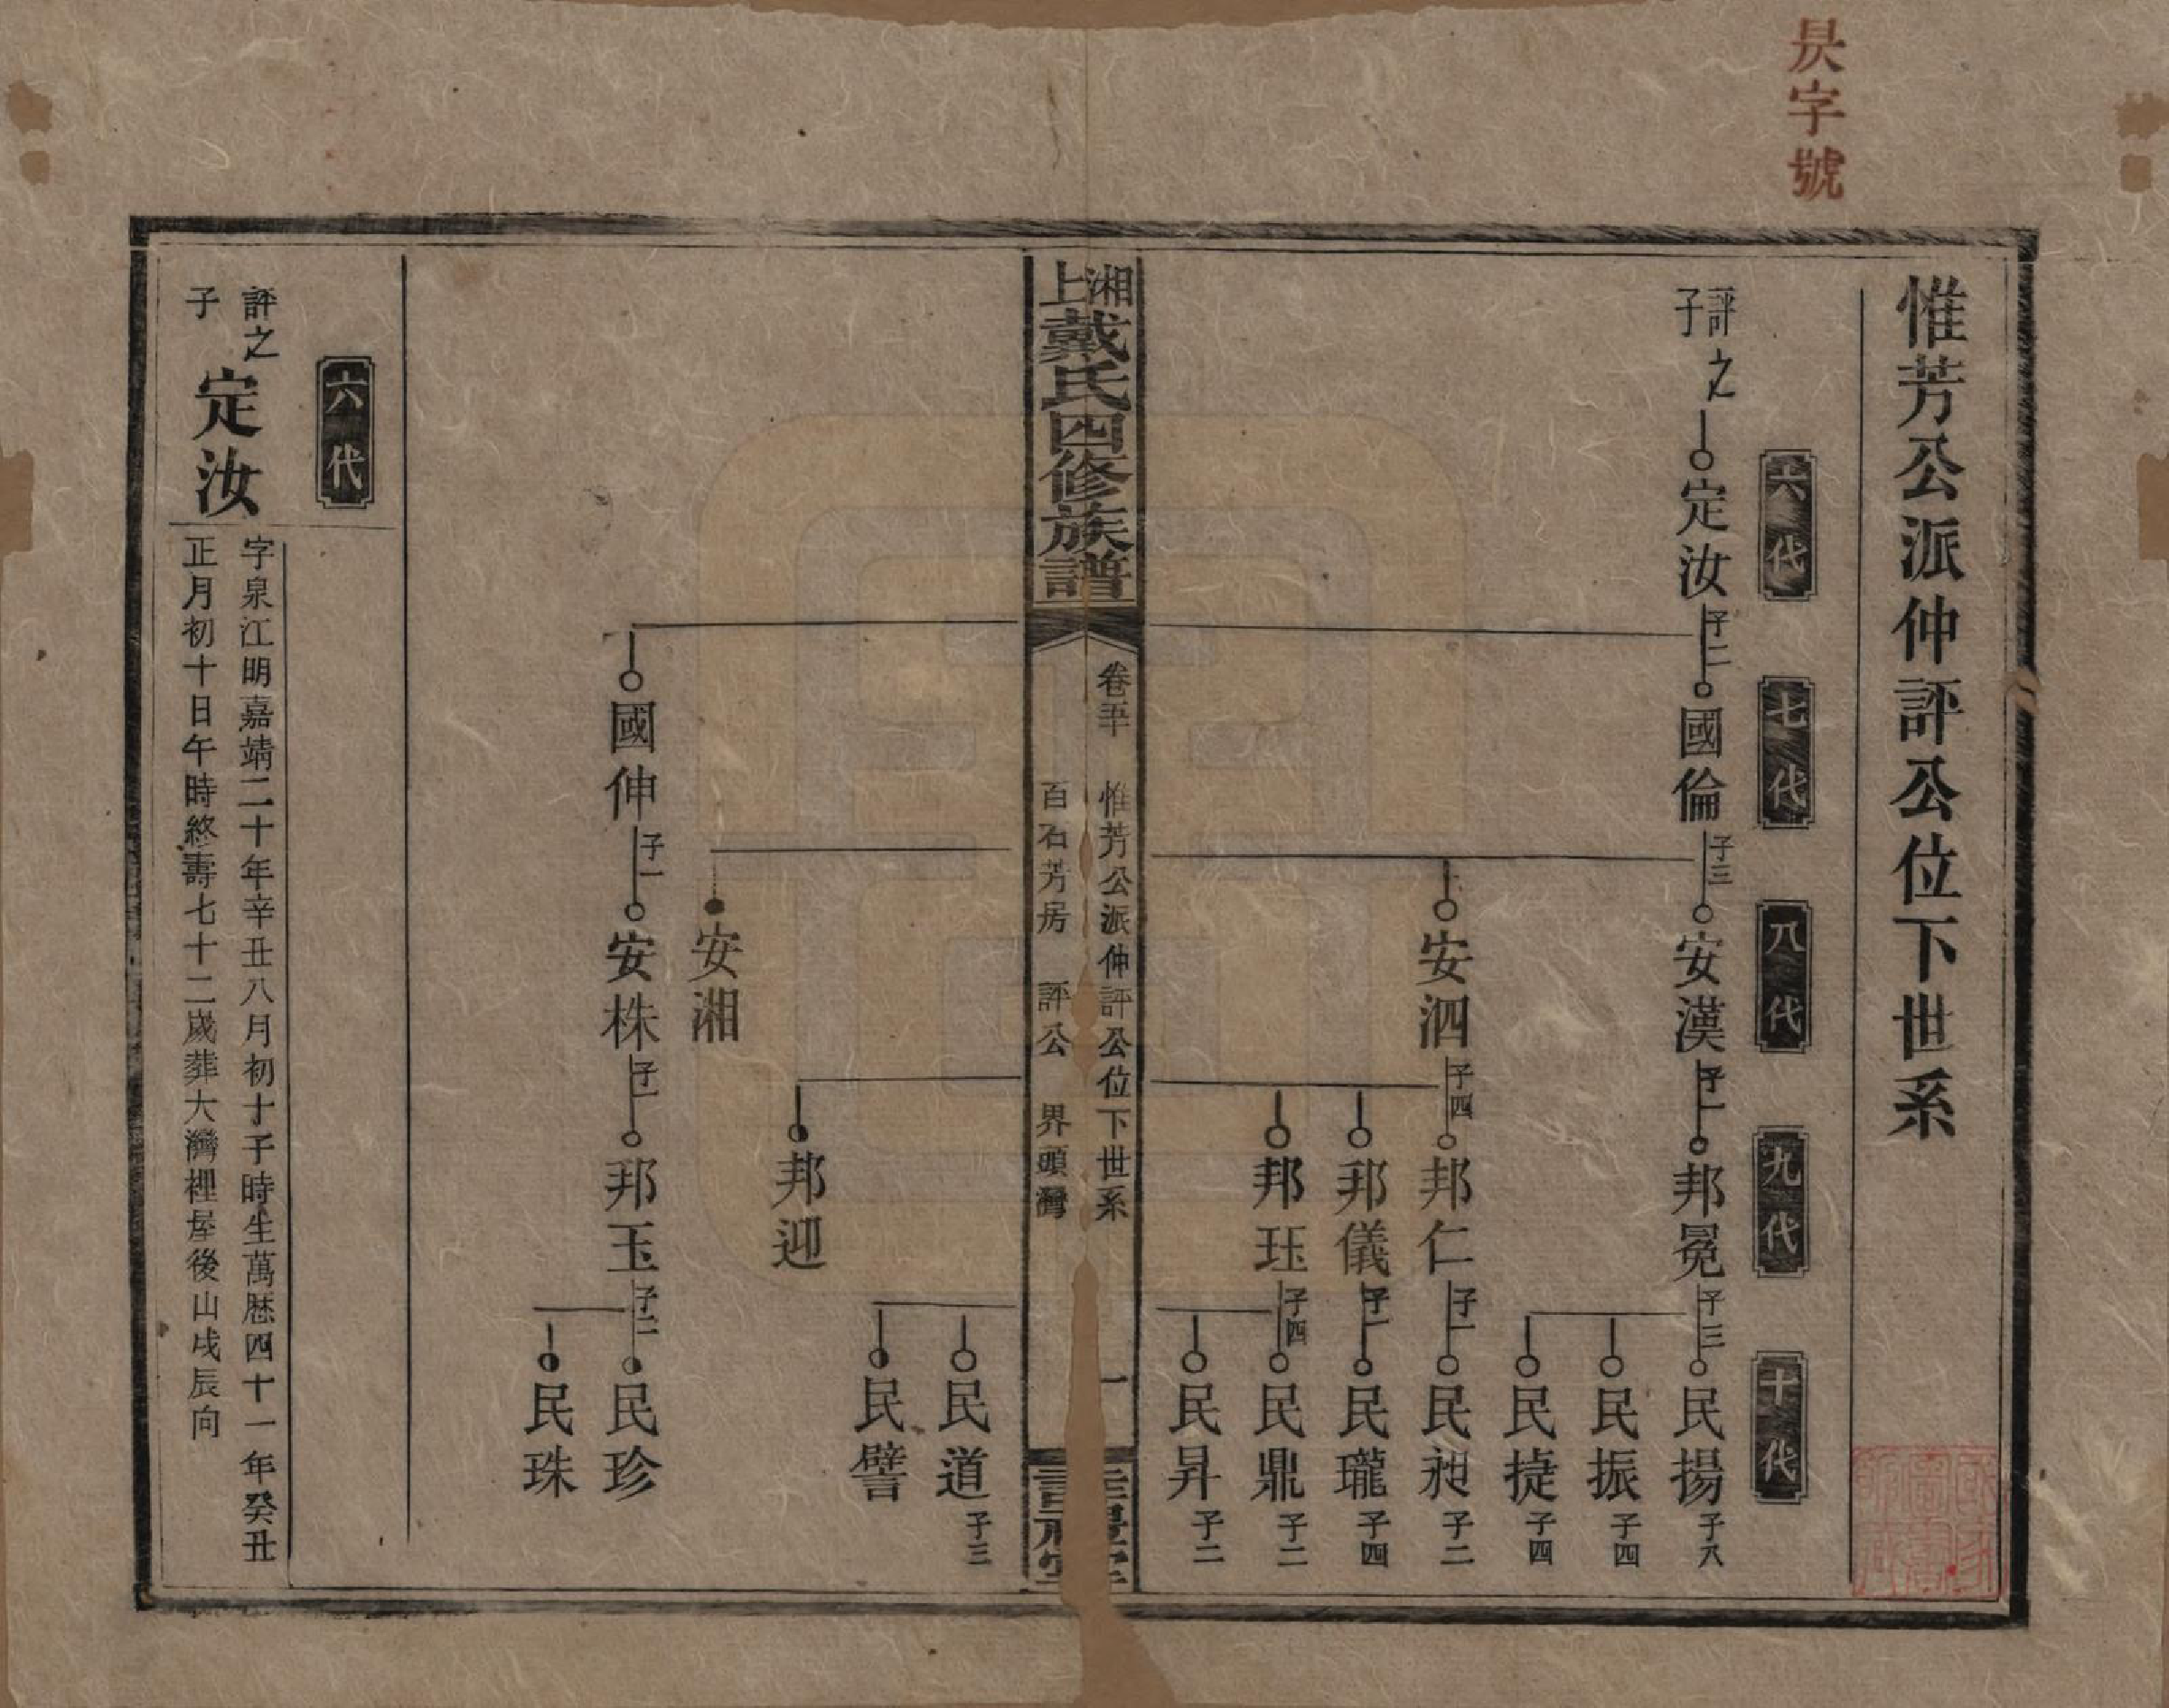 昃字號
惟芳公派仲評公位下世系
六代
七代
八代
九代
十代
評之子
定汝 子二
國倫 子三
安漢 子一
邦冕 子三
民揚 子八
民振 子四
民捷 子四
安泗 子四
邦仁 子一
民昶 子二
邦儀 子一
民瓏 子四
邦珏 子四
民鼎 子二
民昇 子二
湘上戴氏四修族譜
卷五 惟芳公派仲評公位下世系 一
百石芳房 評公 界頭灣
民道 子三
民譬
邦迎
安湘
國伸 子一
安株 子一
邦玉 子二
民珍
民珠
六代
評之子
定汝
字泉江明嘉靖二十年辛丑八月初十子時生萬歷四十一年癸丑
正月初十日午時終壽七十二歲葬大灣裡屋後山戌辰向